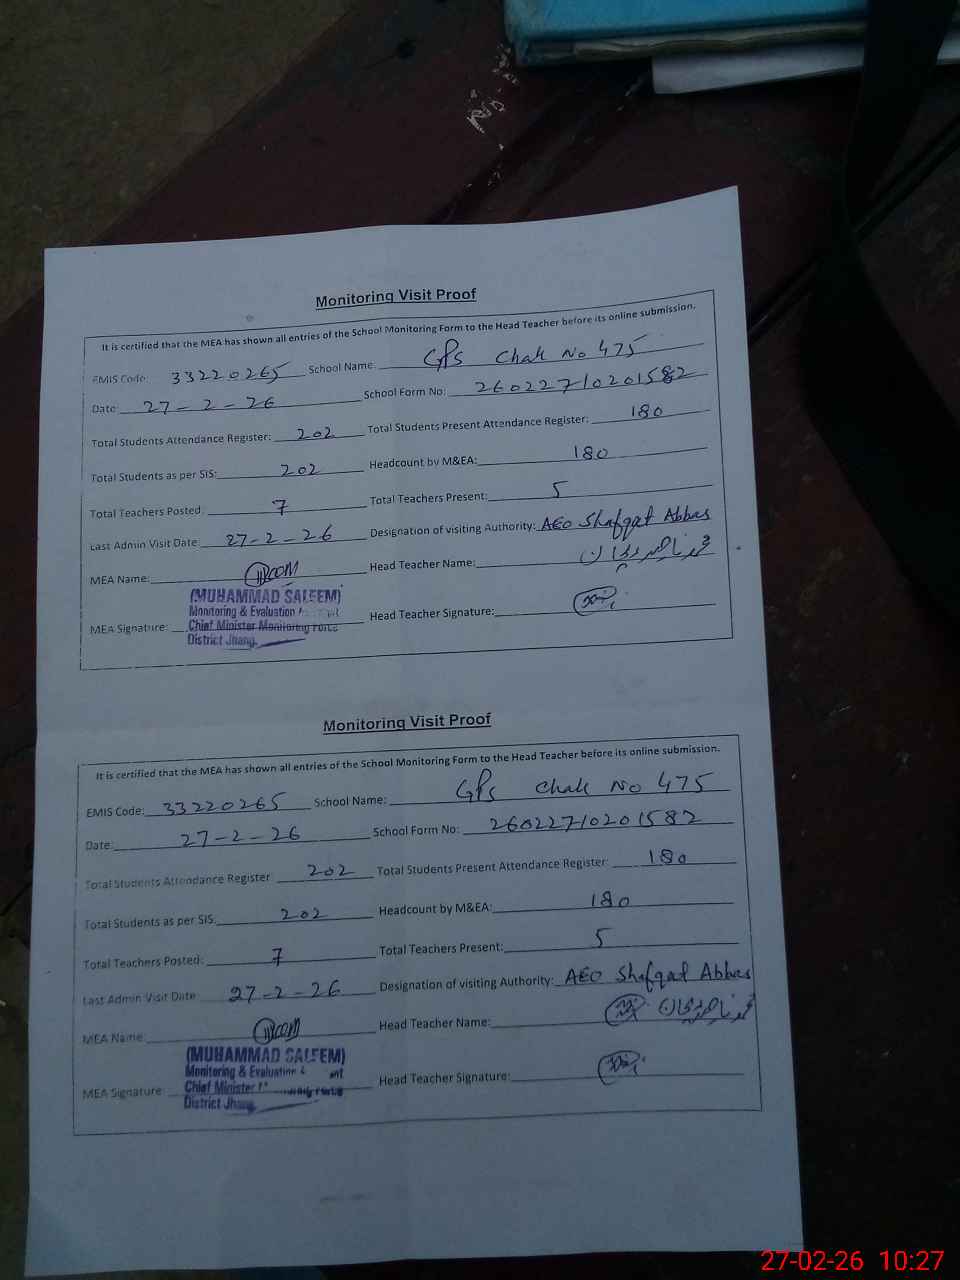 Monitoring Visit Proof
It is certified that the MEA has shown all entries of the School Monitoring Form to the Head Teacher before its online submission.
EMIS Code: 33220265 School Name: GPS Chak No 475
Date: 27-2-26 School Form No: 26022710201582
Total Students Attendance Register: 202 Total Students Present Attendance Register: 180
Total Students as per SIS: 202 Headcount by M&EA: 180
Total Teachers Posted: 7 Total Teachers Present: 5
Last Admin Visit Date: 27-2-26 Designation of visiting Authority: AEO Shafqat Abbas
MEA Name: Head Teacher Name:
(MUHAMMAD SALEEM)
Monitoring & Evaluation
MEA Signature: Chief Minister Monitoring Force Head Teacher Signature:
District Jhang
Monitoring Visit Proof
It is certified that the MEA has shown all entries of the School Monitoring Form to the Head Teacher before its online submission.
EMIS Code: 33220265 School Name: GPS Chak No 475
Date: 27-2-26 School Form No: 26022710201582
Total Students Attendance Register: 202 Total Students Present Attendance Register: 180
Total Students as per SIS: 202 Headcount by M&EA: 180
Total Teachers Posted: 7 Total Teachers Present: 5
Last Admin Visit Date: 27-2-26 Designation of visiting Authority: AEO Shafqat Abbas
MEA Name: Head Teacher Name:
(MUHAMMAD SALEEM)
Monitoring & Evaluation
MEA Signature: Chief Minister Force Head Teacher Signature:
District Jhang
27-02-26 10:27